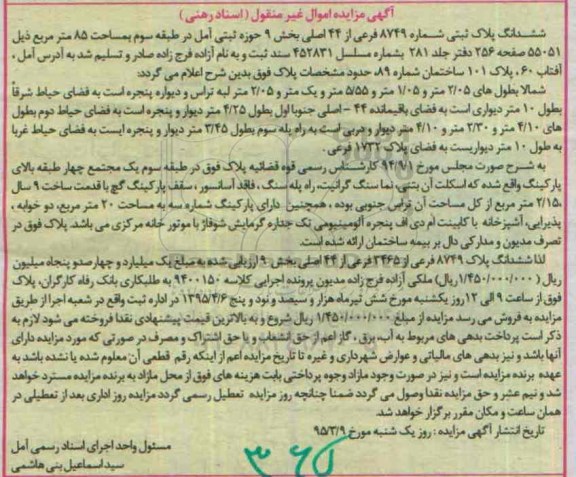 آگهی مزایده اموال غیر منقول (اسناد رهنی)
ششدانگ پلاک ثبتی شماره ۸۷۴۹ فرعی از ۴۴ اصلی بخش ۹ حوزه ثبتی آمل در طبقه سوم بمساحت ۸۵ متر مربع ذیل
۵۵۰۵۱ صفحه ۲۵۶ دفتر جلد ۲۸۱ بشماره مسلسل ۴۵۲۸۳۱ سند ثبت و به نام آزاده فرج زاده صادر و تسلیم شد به آدرس آمل ،
آفتاب ۶۰ ، پلاک ۱۰۱ ساختمان شماره ۸۹، حدود مشخصات پلاک فوق بدین شرح اعلام می گردد:
شمالا بطول های ۲/۰۵ متر و ۱/۰۵ متر و ۵/۵۵ متر و یک متر و ۲/۰۵ متر لبه تراس و دیواره پنجره است به فضای حیاط شرقا
بطول ۱۰ متر دیواری است به فضای باقیمانده ۴۴ – اصلی جنوبا اول بطول ۴/۲۵ متر دیوار و پنجره است به فضای حیاط دوم بطول
های ۴/۱۰ متر و ۲/۳۰ متر و ۴/۱۰ متر دیوار و دربی است به راه پله سوم بطول ۳/۴۵ متر دیوار و پنجره ایست به فضای حیاط غربا
به طول ۱۰ متر دیواریست به فضای پلاک ۱۷۳۲ فرعی .
به شرح صورت مجلس مورخ ۹۴/۹/۱ کارشناس رسمی قوه قضائیه پلاک فوق در طبقه سوم یک مجتمع چهار طبقه بالای
پارکینگ واقع شده که اسکلت آن بتنی، نما سنگ گرانیت، راه پله سنگ ، فاقد آسانسور ، سقف پارکینگ گچ با قدمت ساخت ۹ سال
،۲/۱۵ متر مربع از کل مساحت آن تراس جنوبی بوده ، همچنین دارای پارکینگ شماره سه به مساحت ۲۰ متر مربع، دو خوابه ،
پذیرایی، آشپزخانه با کابینت ام دی اف پنجره آلومینیومی تک جداره گرمایش شوفاژ با موتور خانه مرکزی می باشد. پلاک فوق در
تصرف مدیون و مدارکی دال بر بیمه ساختمان ارائه نشده است.
لذا ششدانگ پلاک ۸۷۴۹ فرعی از ۳۴۶۵ فرعی از ۴۴ اصلی بخش ۹ ارزیابی شده به مبلغ یک میلیارد و چهارصد و پنجاه میلیون
ریال (۱/۴۵۰/۰۰۰/۰۰۰ ریال) ملکی آزاده فرج زاده مدیون پرونده اجرایی کلاسه ۹۴۰۰۱۵۰ به طلبکاری بانک رفاه کارگران، پلاک
فوق از ساعت ۹ الی ۱۲ روز یکشنبه مورخ شش تیرماه هزار و سیصد و نود و پنج ۱۳۹۵/۴/۶ در اداره ثبت واقع در شعبه اجرا از طریق
مزایده به فروش می رسد مزایده از مبلغ ۱/۴۵۰/۰۰۰/۰۰۰ ریال شروع و به بالاترین قیمت پیشنهادی نقدا فروخته می شود لازم به
ذکر است پرداخت بدهی های مربوط به آب، برق ، گاز اعم از حق انشعاب و یا حق اشتراک و مصرف در صورتی که مورد مزایده دارای
آنها باشد و نیز بدهی های مالیاتی و عوارض شهرداری و غیره تا تاریخ مزایده اعم از اینکه رقم قطعی آن معلوم شده یا نشده باشد به
عهده برنده مزایده است و نیز در صورت وجود مازاد وجوه پرداختی بابت هزینه های فوق از محل مازاد به برنده مزایده مسترد خواهد
شد و نیم عشر و حق مزایده نقدا وصول می گردد ضمنا چنانچه روز مزایده تعطیل رسمی گردد مزایده روز اداری بعد از تعطیلی در
همان ساعت و مکان مقرر برگزار خواهد شد.
تاریخ انتشار آگهی مزایده : روز یک شنبه مورخ ۹۵/۳/۹
مسئول واحد اجرای اسناد رسمی آمل
سید اسماعیل بنی هاشمی